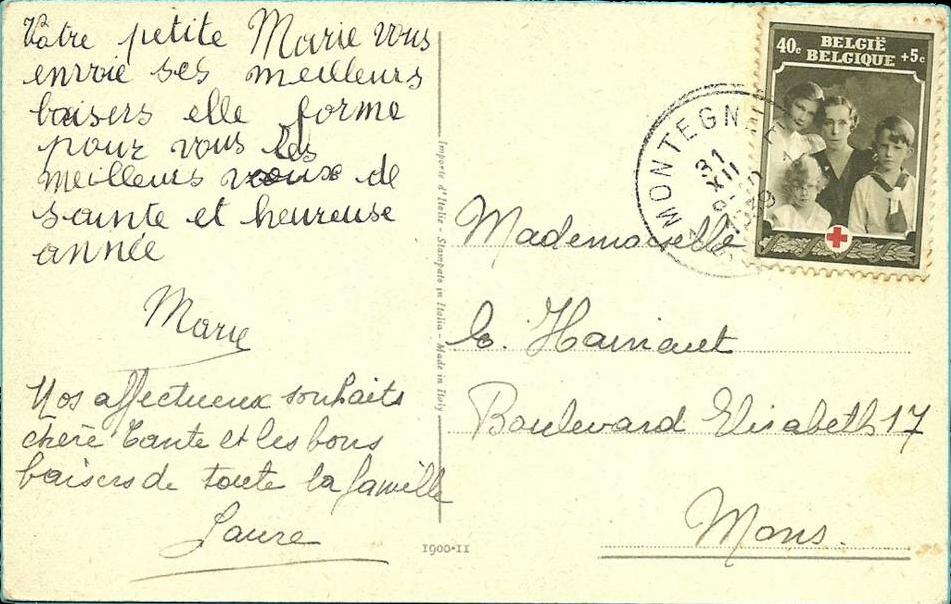 Votre petite Marie vous
envoie ses meilleurs
baisers elle forme
pour vous les
meilleurs vœux de
sainte et heureuse
année
Marie
Nos affectueux souhaits
chère Tante et les bons
baisers de toute la famille
Laure
Importe d'Italie - Stampato in Italia - Made in Italy
1900-11
BELGIË
BELGIQUE
40c +5c
MONTEGN
31
XII
1939
Mademoiselle
Hainaut
Boulevard Elisabeth 17
Mons.